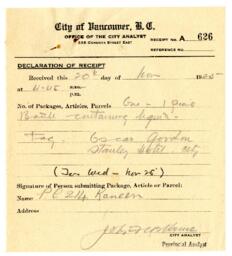 City of Vancouver, B.C.
OFFICE OF THE CITY ANALYST
RECEIPT No. A 626
236 CORDOVA STREET EAST
REFERENCE No.
DECLARATION OF RECEIPT
Received this 20th day of Nov 1935
at 11:45 a.m. p.m.
No. of Packages, Articles, Parcels One - 1
Bottle - containing liquid -
Tag. Oscar Gordon
Stanley Hotel - City
(Due Wed - Nov 25)
Signature of Person submitting Package, Article or Parcel:
Name P.C. 244
Address
CITY ANALYST
Provincial Analyst